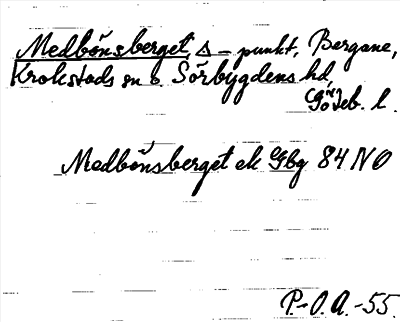 Medbönsberget, Δ-punkt, Bergane,
Krokstads sn o. Sörbygdens hd,
Göteb. l.
Medbönsberget ek Gbg 84 NO
P.-O.A.-55.